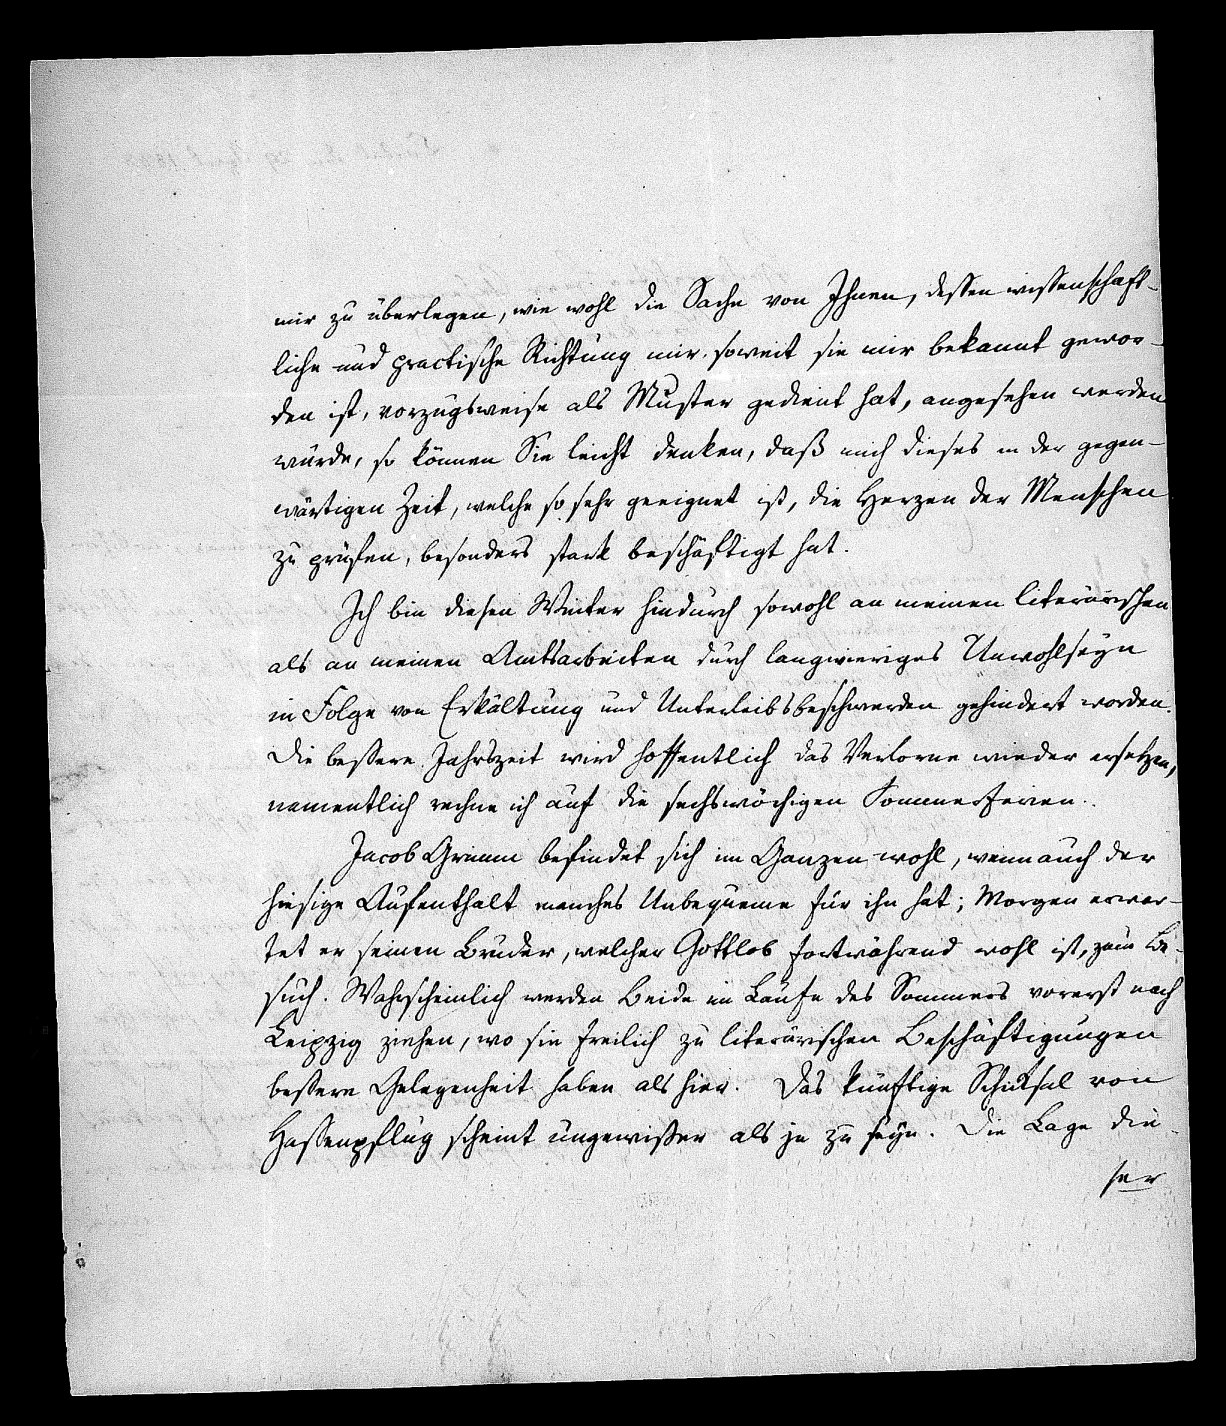 mir zu überlegen, wie wohl die Sache von Ihnen, dessen wissenschaft-
liche und practische Richtung mir, soweit sie mir bekannt gewor-
den ist, vorzugsweise als Muster gedient hat, angesehen werden
würde, so können Sie leicht denken, daß mich dieses in der gegen-
wärtigen Zeit, welche so sehr geeignet ist, die Herzen der Menschen
zu prüfen, besonders stark beschäftigt hat.
Ich bin diesen Winter hindurch sowohl an meinen literärischen
als an meinen Amtsarbeiten durch langwieriges Unwohlseyn
in Folge von Erkältung und Unterleibsbeschwerden gehindert worden.
Die bessere Jahrszeit wird hoffentlich das Verlorne wieder ersetzen,
namentlich rechne ich auf die sechswöchigen Sommerferien.
Jacob Grimm befindet sich im Ganzen wohl, wenn auch der
hiesige Aufenthalt manches Unbequeme für ihn hat; Morgen erwar-
tet er seinen Bruder, welcher Gottlob fortwährend wohl ist, zum Be-
such. Wahrscheinlich werden Beide im Laufe des Sommers vorerst nach
Leipzig ziehen, wo sie freilich zu literärischen Beschäftigungen
bessere Gelegenheit haben als hier. Das künftige Schicksal von
Hassenpflug scheint ungewisser als je zu seyn. Die Lage die-
ser